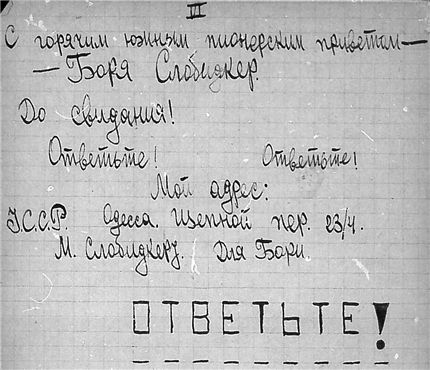 III
С горячим южным пионерским приветом —
— Боря Слободкер.
До свидания!
Ответьте! Ответьте!
Мой адрес:
У.С.С.Р. Одесса. Щепной пер. 23/4.
М. Слободкеру. Для Бори.
ОТВЕТЬТЕ!